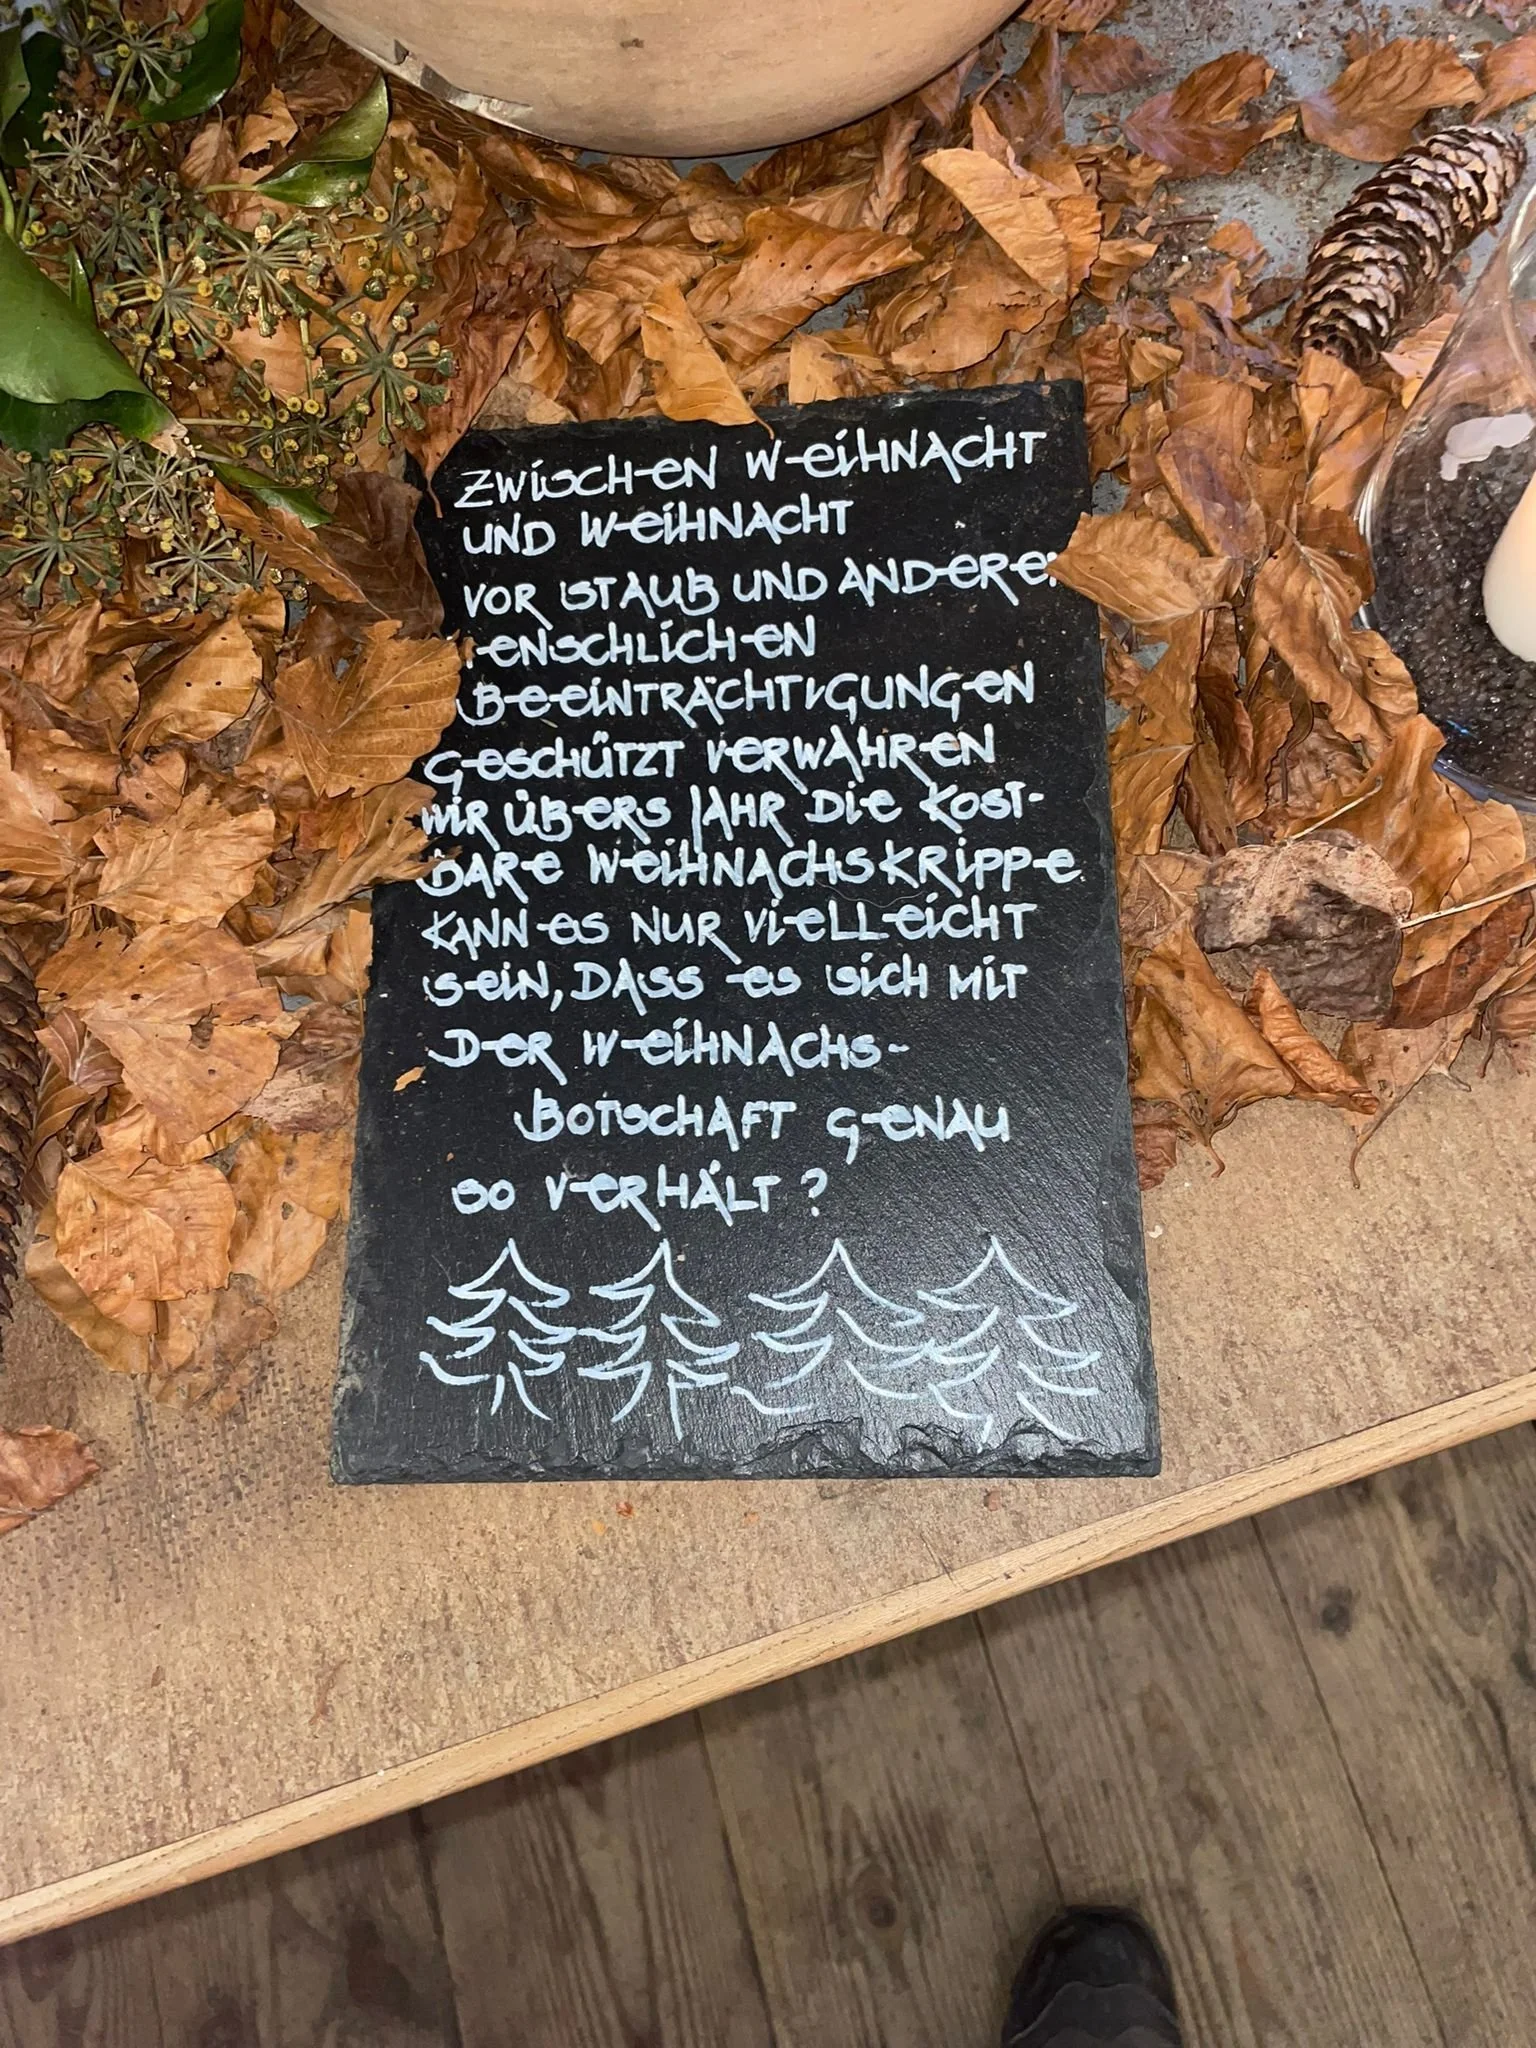 ZWISCHEN WEIHNACHT
UND WEIHNACHT
VOR STAUB UND ANDEREN
MENSCHLICHEN
BEEINTRÄCHTIGUNGEN
GESCHÜTZT VERWAHREN
WIR ÜBERS JAHR DIE KOST-
BARE WEIHNACHSKRIPPE
KANN ES NUR VIELLEICHT
SEIN, DASS ES SICH MIT
DER WEIHNACHS-
BOTSCHAFT GENAU
SO VERHÄLT?